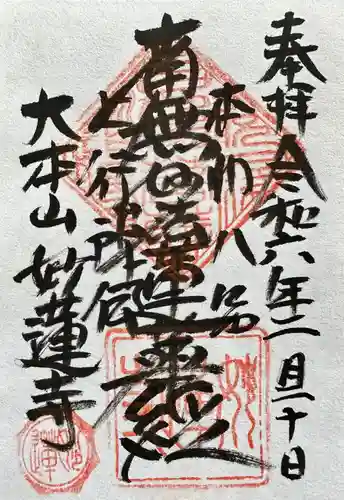 奉拝 令和六年二月二十日
本門八品
南無妙法蓮華経
上行所伝
大本山妙蓮寺